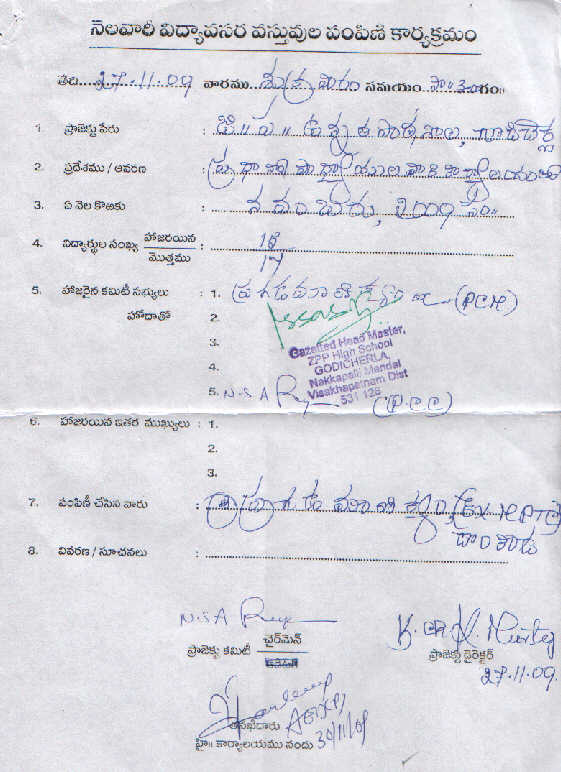 నెలవారీ విద్యావసర వస్తువుల పంపిణీ కార్యక్రమం
తేది....27.11.09 వారము. శుక్రవారం సమయం. సా 3.00గం॥
1. ప్రాజెక్టు పేరు : జి॥ ప॥ ఉన్నత పాఠశాల, గూడిచెర్ల
2. ప్రదేశము / ఆవరణ : ప్రధానోపాధ్యాయుల వారి కార్యాలయం
3. ఏ నెల కొఱకు : నవంబరు, 2009 సం॥
4. విద్యార్థుల సంఖ్య హాజరయిన : 16
మొత్తము 17
5. హాజరైన కమిటీ సభ్యులు : 1. (PCM)
హోదాతో 2.
3.
4.
Gazetted Head Master,
ZPP High School
GODICHERLA,
Nakkapalli Mandal
Visakhapatnam Dist
531 126
5. N.S.A (P.C.C)
6. హాజరయిన ఇతర ముఖ్యులు : 1.
2.
3.
7. పంపిణీ చేసిన వారు : (Ex MPTC)
8. వివరణ / సూచనలు :
N.S.A
ప్రాజెక్టు కమిటీ ఛైర్‌మెన్
K. Murty
ప్రాజెక్టు డైరెక్టర్
27.11.09
తనిఖీదారు
హై॥ కార్యాలయము నందు 30/11/09